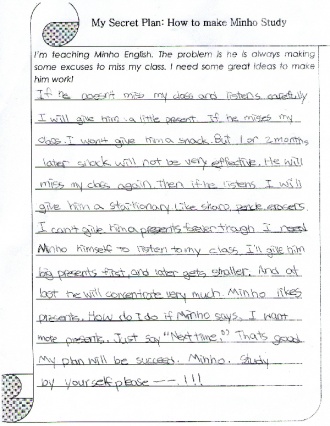 My Secret Plan: How to make Minho Study
I'm teaching Minho English. The problem is he is always making
some excuses to miss my class. I need some great ideas to make
him work!
If he doesn't miss my class and listens carefully
I will give him a little present. If he misses my
class. I won't give him a snack. But 1 or 2 months
later snack will not be very effective. He will
miss my class again. Then if he listens I will
give him a stationary like sharp, erasers
I can't give him a presents forever though I need
Minho himself to listen to my class. I'll give him
big presents first, and later gets smaller. And at
last he will concentrate very much. Minho likes
presents. How do I do if Minho says, I want
more presents. Just say "Next time." That's good
My plan will be succeed. Minho. Study
by yourself please ~~. !!!